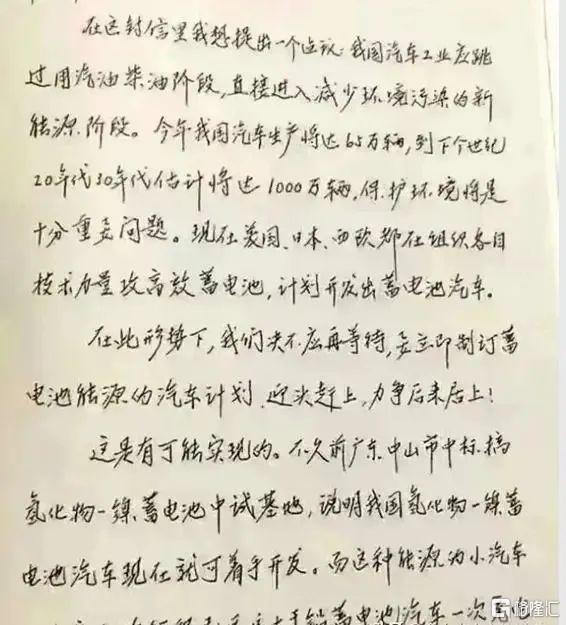 在这封信里我想提出一个建议:我国汽车工业应跳
过用汽油柴油阶段,直接进入减少环境污染的新
能源阶段。今年我国汽车生产将达65万辆,到下个世纪
20年代30年代估计将达1000万辆,保护环境将是
十分重要问题。现在美国、日本、西欧都在组织各自
技术力量攻高效蓄电池,计划开发出蓄电池汽车。
在此形势下,我们决不应再等待,要立即制订蓄
电池能源的汽车计划,迎头赶上,力争后来居上!
这是有可能实现的。不久前广东中山市中标搞
氢化物-镍蓄电池中试基地,说明我国氢化物-镍蓄
电池汽车现在就可着手开发。而这种能源为小汽车
蓄电池汽车一次充电
格隆汇